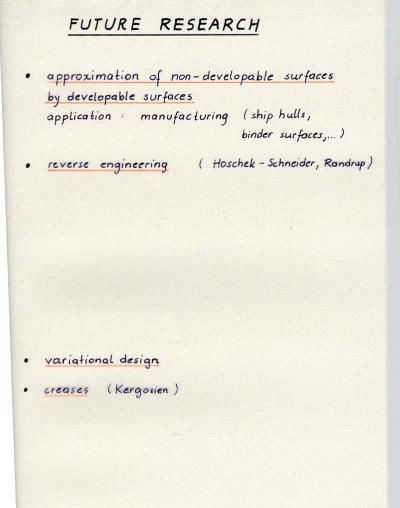 FUTURE RESEARCH
• approximation of non-developable surfaces
by developable surfaces
application : manufacturing (ship hulls,
binder surfaces,...)
• reverse engineering (Hoschek-Schneider, Randrup)
• variational design
• creases (Kergosien)